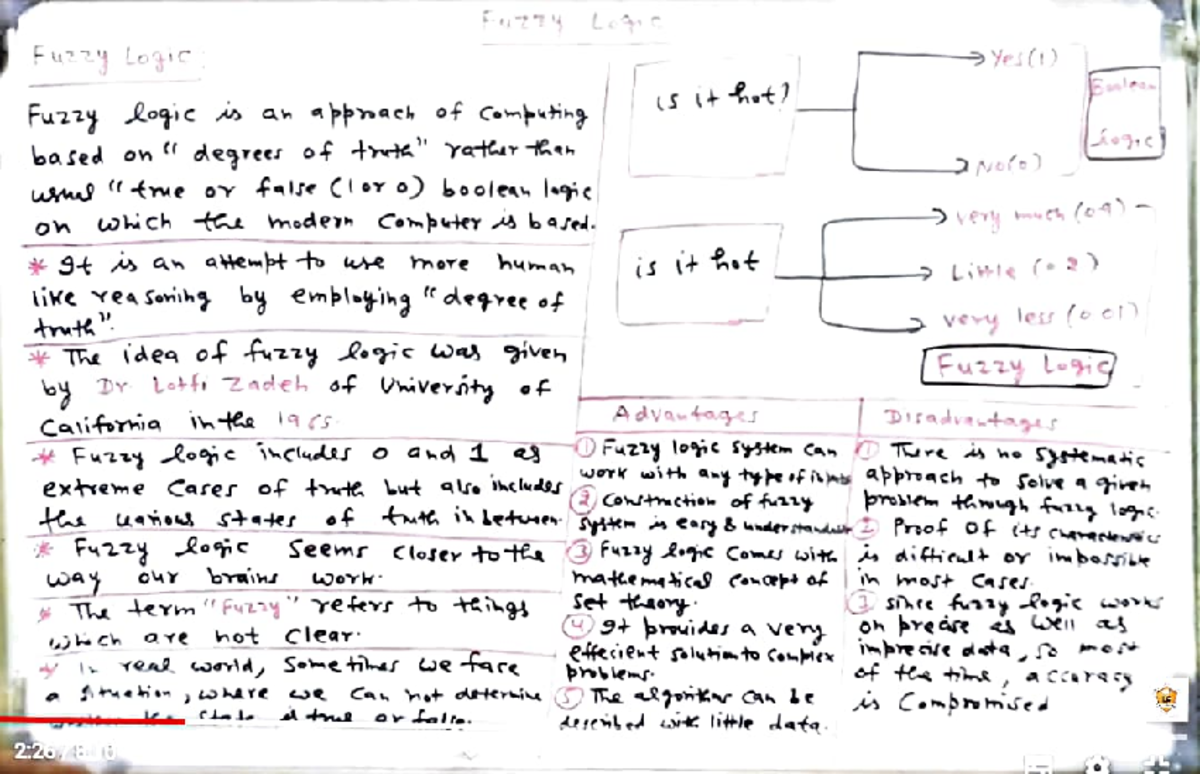 Fuzzy Logic
Fuzzy Logic:
Fuzzy logic is an approach of computing
based on "degrees of truth" rather than
usual "true or false (1 or 0) boolean logic
on which the modern computer is based.
* It is an attempt to use more human
like reasoning by employing "degree of
truth".
* The idea of fuzzy logic was given
by Dr. Lotfi Zadeh of University of
California in the 1965.
* Fuzzy logic includes 0 and 1 as
extreme cases of truth but also includes
the various states of truth in between.
* Fuzzy logic seems closer to the
way our brains work.
* The term "Fuzzy" refers to things
which are not clear.
* In real world, sometimes we face
a situation, where we can not determine
the state is true or false.
is it hot?
Yes(1)
No(0)
Boolean
Logic
is it hot
very much (0.9)
Little (0.2)
very less (0.01)
Fuzzy Logic
Advantages
① Fuzzy logic system can
work with any type of inputs
② Construction of fuzzy
system is easy &
③ Fuzzy logic comes with
mathematical concept of
set theory.
④ It provides a very
effecient solution to complex
problems.
⑤ The algorithm can be
described with little data.
Disadvantages
① There is no systematic
approach to solve a given
problem through fuzzy logic.
② Proof of its characteristics
is difficult or impossible
in most cases.
③ since fuzzy logic works
on precise as well as
imprecise data, so most
of the time, accuracy
is compromised
2:26/8:10